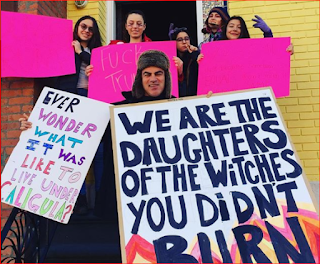 Fuck
Trump
EVER
WONDER
WHAT
IT WAS
LIKE TO
LIVE UNDER
CALIGULA?
WE ARE THE
DAUGHTERS
OF THE WITCHES
YOU DIDN'T
BURN